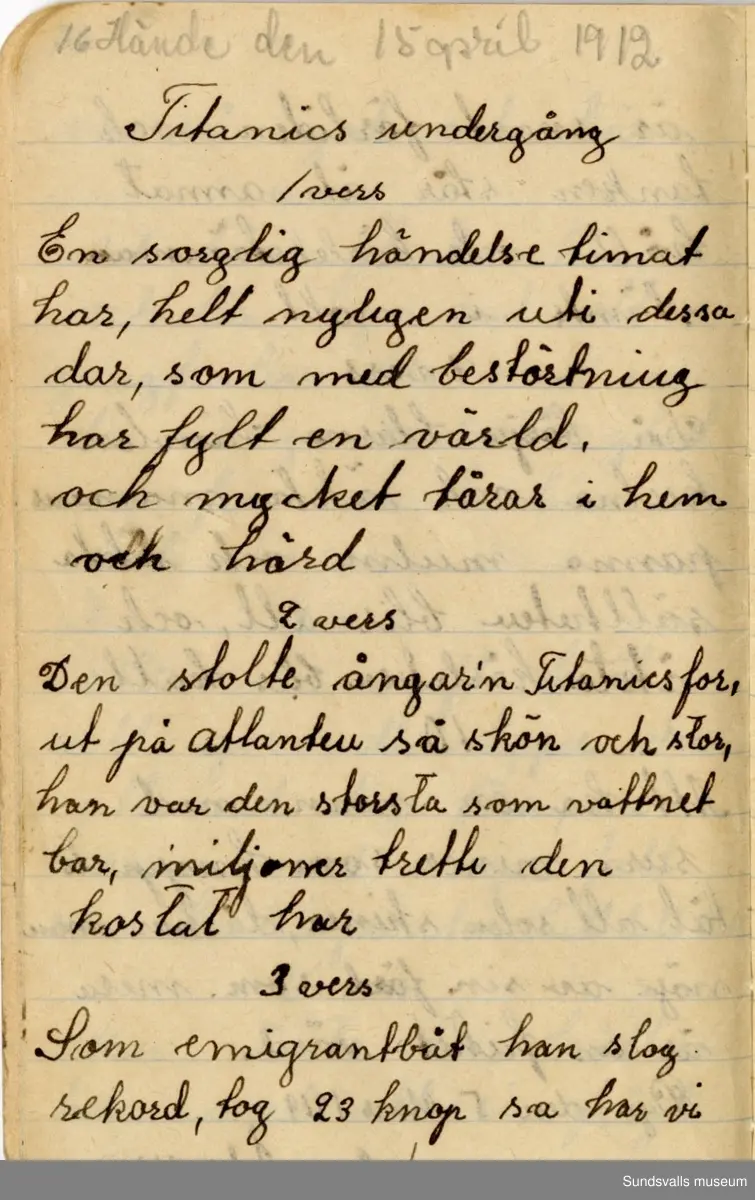 16 Hände den 15 april 1912
Titanics undergång
1 vers
En sorglig händelse timat
har, helt nyligen uti dessa
dar, som med bestörtning
har fylt en värld.
och mycket tårar i hem
och härd
2 vers
Den stolte ångar'n Titanics for,
ut på atlanten så skön och stor,
han var den storsta som vattnet
bar, miljoner tretti den
kostat har
3 vers
Som emigrantbåt han slog
rekord, tog 23 knop sa har vi
Sundsvalls museum